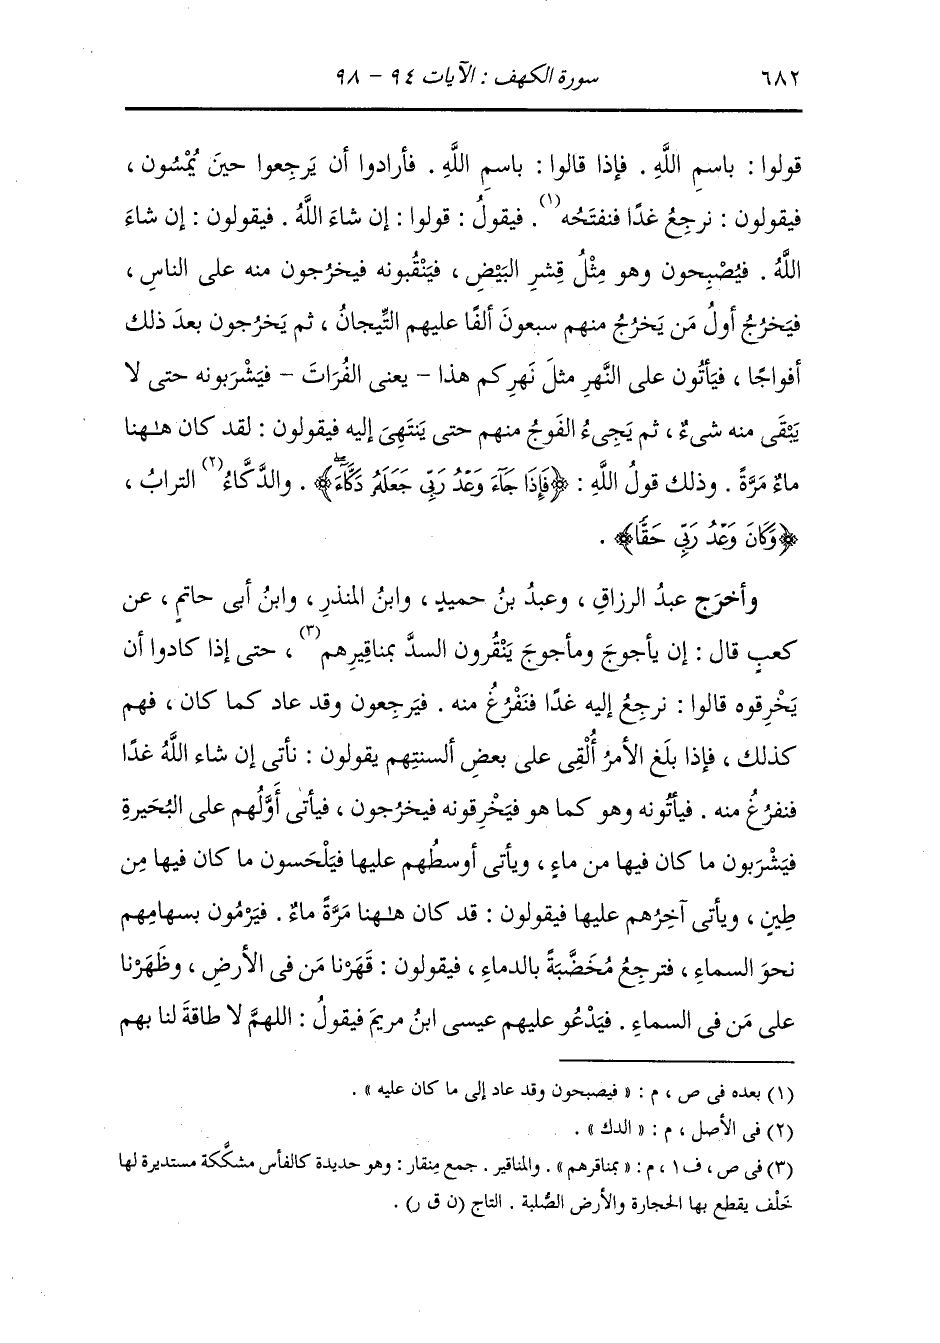 ٦٨٢ سورة الكهف : الآيات ٩٤ - ٩٨
قولوا : باسمِ اللَّهِ . فإذا قالوا : باسمِ اللَّهِ . فأرادوا أن يَرجِعوا حينَ يُمْسُون ،
فيقولون : نرجِعُ غدًا فنفتَحُه(١). فيقولُ : قولوا : إن شاءَ اللَّهُ . فيقولون : إن شاءَ
اللَّهُ . فيُصْبِحون وهو مِثْلُ قِشرِ البَيْضِ ، فيَنْقُبونه فيخرُجون منه على الناسِ ،
فيَخرُجُ أولُ مَن يَخرُجُ منهم سبعونَ ألفًا عليهم التِّيجانُ ، ثم يَخرُجون بعدَ ذلك
أفواجًا ، فيَأتُون على النَّهرِ مثلَ نَهرِكم هذا - يعنى الفُرَاتَ - فيَشْرَبونه حتى لا
يَبْقَى منه شىءٌ ، ثم يَجِىءُ الفَوجُ منهم حتى يَنتَهِىَ إليه فيقولون : لقد كان هلهنا
ماءٌ مَرَّةً . وذلك قولُ اللَّهِ : ﴿فَإِذَا جَآءَ وَعْدُ رَبِّى جَعَلَهُۥ دَكَّآءَۖ﴾ . والدَّكَّاءُ(٢) الترابُ ،
﴿وَكَانَ وَعْدُ رَبِّى حَقًّا﴾ .
وأخرَج عبدُ الرزاقِ ، وعبدُ بنُ حميدٍ ، وابنُ المنذرِ ، وابنُ أبى حاتمٍ ، عن
كعبٍ قال : إن يأجوجَ ومأجوجَ يَنْقُرون السدَّ بمناقِيرِهم(٣) ، حتى إذا كادوا أن
يَخْرِقوه قالوا : نرجِعُ إليه غدًا فنَفْرُغُ منه . فيَرجِعون وقد عاد كما كان ، فهم
كذلك ، فإذا بلَغ الأمرُ أُلْقِى على بعضِ ألسنتِهم يقولون : نأتى إن شاء اللَّهُ غدًا
فنفرُغُ منه . فيأتُونه وهو كما هو فيَخْرِقونه فيخرُجون ، فيأتى أَوَّلُهم على البُحَيرةِ
فيَشْرَبون ما كان فيها من ماءٍ ، ويأتى أوسطُهم عليها فيَلْحَسون ما كان فيها مِن
طِينٍ ، ويأتى آخِرُهم عليها فيقولون : قد كان هلهنا مَرَّةً ماءٌ . فيَرْمُون بسهامِهم
نحوَ السماءِ ، فترجِعُ مُخَضَّبَةً بالدماءِ ، فيقولون : قَهَرْنا مَن فى الأرضِ ، وظَهَرْنا
على مَن فى السماءِ . فيَدْعُو عليهم عيسى ابنُ مريمَ فيقولُ : اللهمَّ لا طاقةَ لنا بهم
(١) بعده فى ص ، م : « فيصبحون وقد عاد إلى ما كان عليه » .
(٢) فى الأصل ، م : « الدك » .
(٣) فى ص ، ف١ ، م : « بمناقرهم » . والمناقير . جمع مِنقار : وهو حديدة كالفأس مشكَّكة مستديرة لها
خَلْف يقطع بها الحجارة والأرض الصُّلبة . التاج (ن ق ر) .